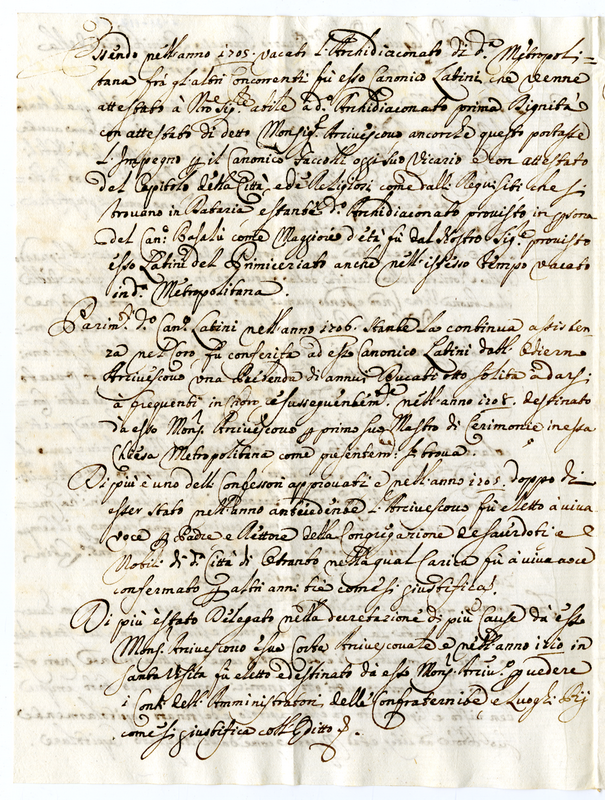 Essendo nell'anno 1705. vacato l'Archidiaconato di d.ª Metropoli=
tana frà gl'altri concorrenti fù esso Canonico Latini, che venne
attestato a Nro Sig.re abile a d.º Archidiaconato prima Dignità
con attestato di detto Monsig.r Arcivescovo ancorche questo portasse
l'Impegno p il Canonico suo Vicario e con attestato
del Capitolo della Città, e de Religiosi come dalli Requisiti che si
trovano in Dataria e stante d.º Archidiaconato provisto in psona
del Can.º come Maggiore d'età fù dal Nostro Sig.re provisto
esso Latini del Primiceriato anche nell'istesso tempo vacato
in d.ª Metropolitana.
Parim.te d.º Can.co Latini nell'anno 1706. stante la continua assisten
za nel Coro, fù conferita ad esso Canonico Latini dall'Odierno
Arcivescovo una Prebenda di annui Ducati otto solita a darsi
a frequenti in Coro, e susseguentem.te nell'anno 1708. destinato
da esso Mons.r Arcivescovo p primo suo Mastro di Cerimonie in essa
Chiesa Metropolitana come presentem.te si trova.
Di più è uno delli Confessori approvati e nell'anno 1705. doppo di
esser stato nell'anno antecedente l'Arcivescovo fù eletto à viva
voce p Padre e Rettore della Congregazione de Sacerdoti e
Nobili di d.ª Città di Otranto nella qual Carica fù à viva voce
confermato p altri anni trè come si giustifica.
Di più è stato Delegato nella decretazione di più Cause da esso
Mons.r Arcivescovo e sua Corte Arcivescovale e nell'anno 1710 in
Santa Visita fù eletto e destinato da esso Mons.r Arciv.º p vedere
i Conti dell'Amministratori delle Confraternite e Luoghi Pij
come si giustifica coll'Editto